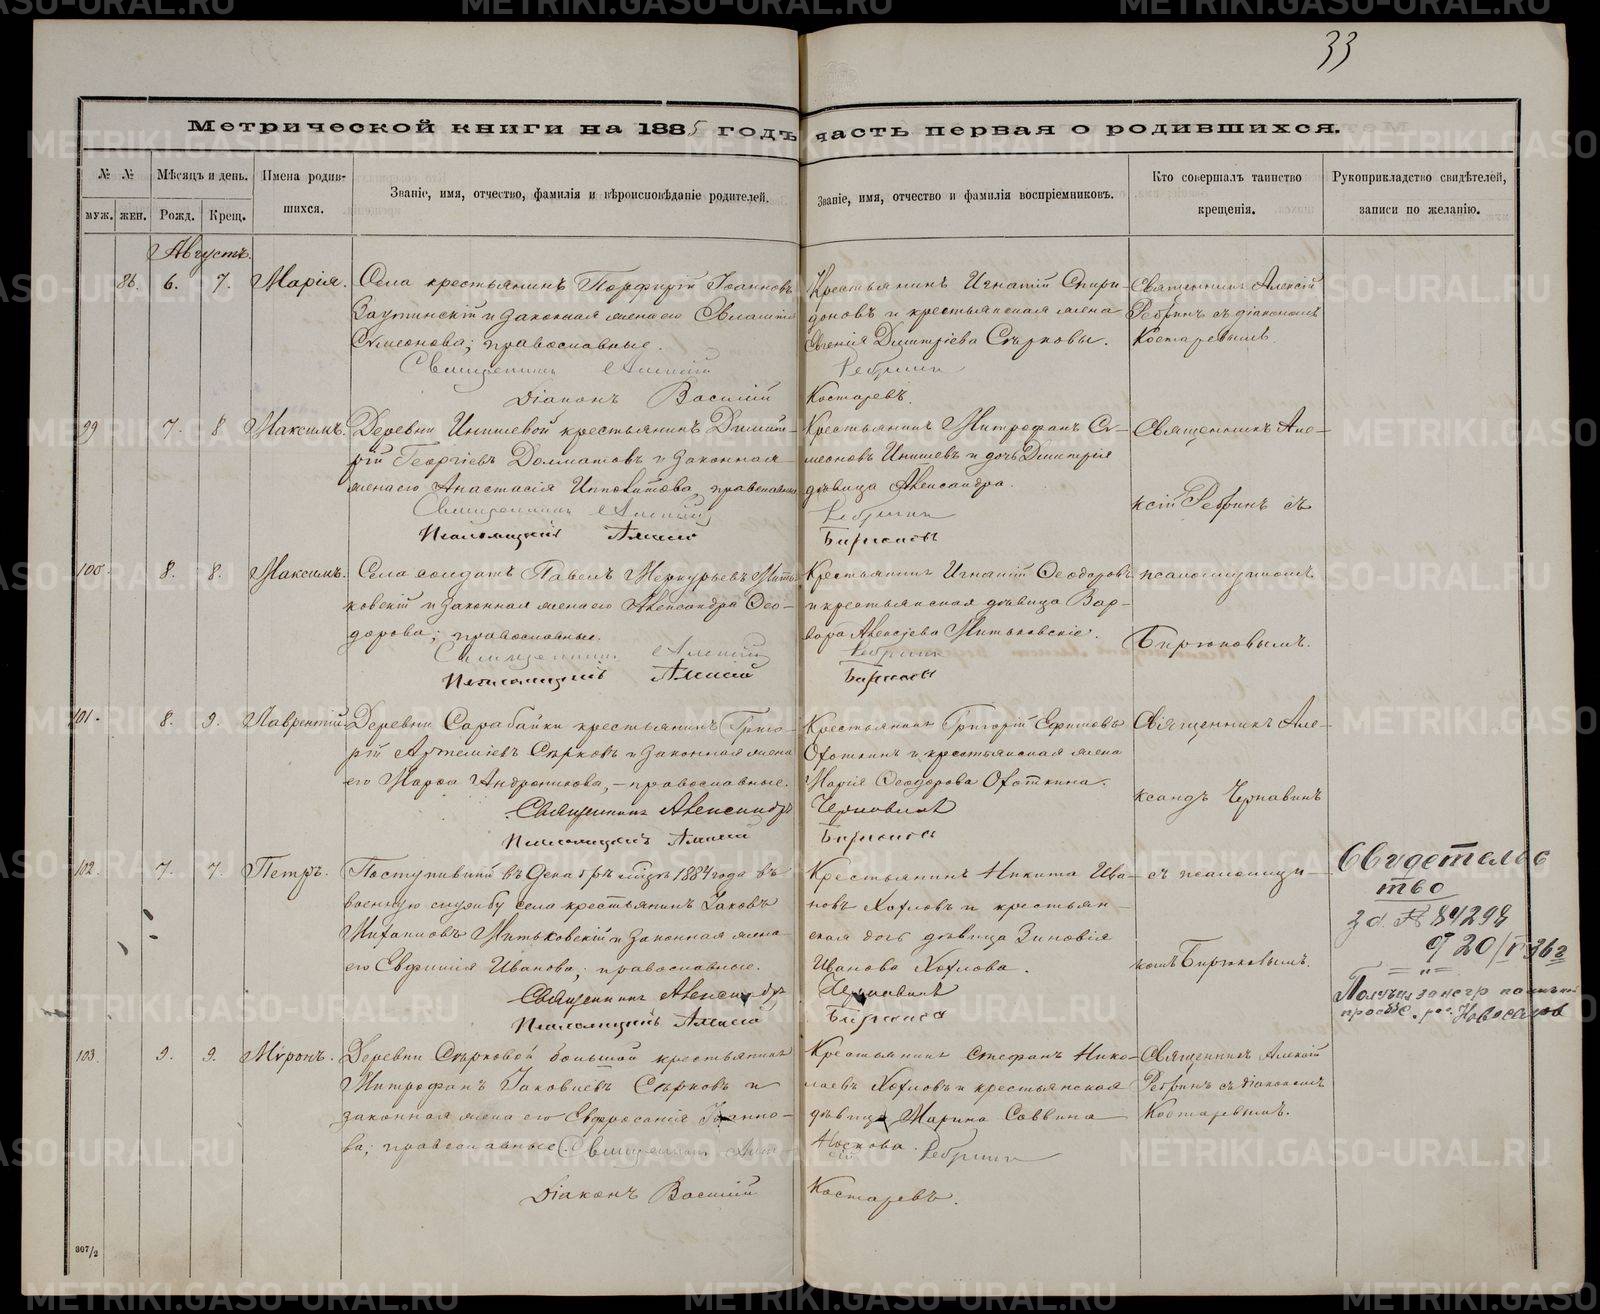 33
Метрической книги на 1885 годъ часть первая о родившихся.
№ № Мѣсяцъ и день. Имена родив-
шихся.
Званіе, имя, отчество, фамилія и вѣроисповѣданіе родителей.
Званіе, имя, отчество и фамилія воспріемниковъ.
Кто совершалъ таинство
крещенія.
Рукоприкладство свидѣтелей,
записи по желанію.
муж. жен. Рожд. Крещ.
Августъ.
86. 6. 7. Марія.
Села крестьянинъ Порфирій Іоанновъ
и законная жена его Евлампія
Симеонова; православные.
Священникъ Алексій
Діаконъ Василій
Крестьянинъ Игнатій Спири-
доновъ и крестьянская жена
Евгенія Димитріева Сѣрковы.
Ребринъ
Костаревъ.
Священникъ Алексій
Ребринъ съ діакономъ
Костаревымъ.
99 7. 8 Максимъ.
Деревни Инишевой крестьянинъ Димит-
рій Георгіевъ Долматовъ и законная
жена его Анастасія Ипполитова, православные
Священникъ Алексій
Псаломщикъ Алексій
Крестьянинъ Митрофанъ Си-
меоновъ Инишевъ и дочь Димитрія
дѣвица Александра.
Ребринъ
Бирюковъ
Священникъ Але-
ксій Ребринъ съ
100. 8. 8. Максимъ.
Села солдатъ Павелъ Меркурьевъ Мить-
ковскій и законная жена его Александра Ѳео-
дорова; православные.
Священникъ Алексій
Псаломщикъ Алексій
Крестьянинъ Игнатій Ѳеодоровъ
и крестьянская дѣвица Вар-
вара Алексіева Митьковскіе.
Ребринъ
Бирюковъ
псаломщикомъ
Бирюковымъ.
101. 8. 9. Лаврентій
Деревни Сарабайки крестьянинъ Григо-
рій Артеміевъ Сѣрковъ и законная жена
его Марѳа Андроникова, – православные.
Священникъ Александръ
Псаломщикъ Алексій
Крестьянинъ Григорій Ефимовъ
Охоткинъ и крестьянская жена
Марія Ѳеодорова Охоткина.
Чернавинъ
Бирюковъ
Священникъ Але-
ксандъ Чернавинъ
102. 7. 7. Петръ.
Поступившій въ Декабрѣ мѣсяцѣ 1884 года въ
военную службу села крестьянинъ Іаковъ
Михаиловъ Митьковскій и законная жена
его Евфимія Иванова; православные.
Священникъ Александръ
Псаломщикъ Алексій
Крестьянинъ Никита Ива-
новъ Хохловъ и крестьян-
ская дочь дѣвица Зиновія
Иванова Хохлова.
Чернавинъ
Бирюковъ
съ псаломщи-
комъ Бирюковымъ.
Свидетельс
тво
за № 84298
от 20/V 36 г
103. 9. 9. Мѵронъ.
Деревни Сѣрковой большой крестьянинъ
Митрофанъ Іаковлевъ Сѣрковъ и
законная жена его Евфросинія Іоанно-
ва; православные. Священникъ Алек-
Діаконъ Василій
Крестьянинъ Стефанъ Нико-
лаевъ Хохловъ и крестьянская
дѣвица Марина Саввина
Носкова.
сій Ребринъ
Костаревъ.
Священникъ Алексій
Ребринъ съ діакономъ
Костаревымъ.
307/2
METRIKI.GASO-URAL.RU